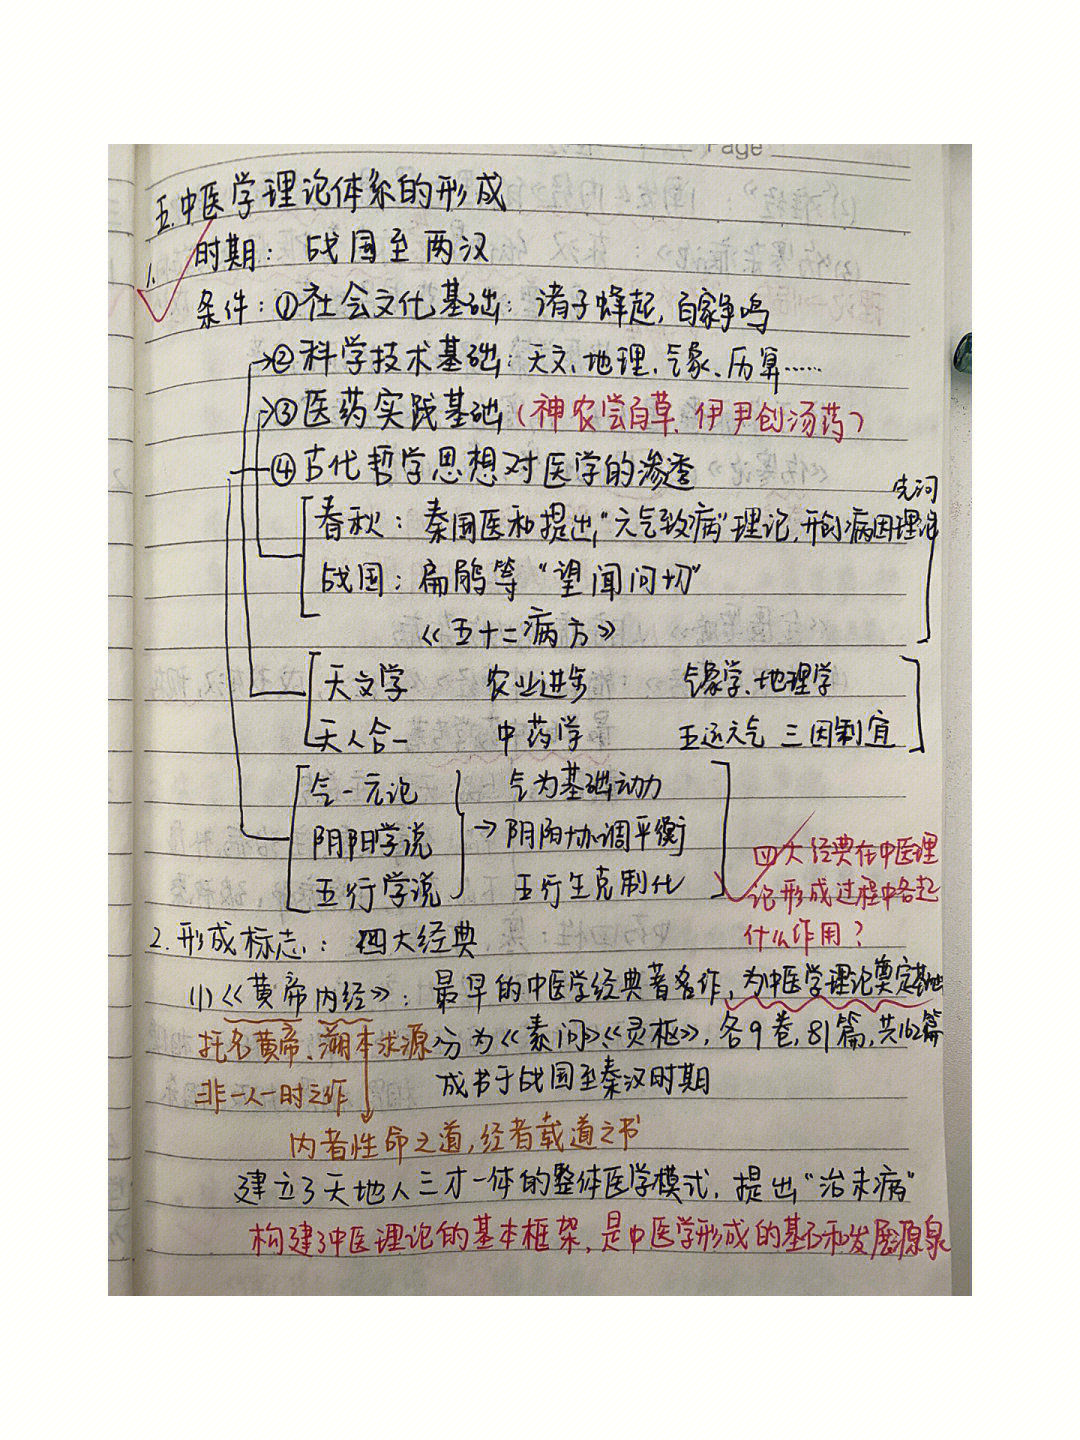 Page
五.中医学理论体系的形成
1. 时期：战国至两汉
条件：①社会文化基础：诸子蜂起，百家争鸣
②科学技术基础：天文、地理、气象、历算……
③医药实践基础（神农尝百草、伊尹创汤药）
④古代哲学思想对医学的渗透
先河
春秋：秦国医和提出“六气致病”理论，开创病因理论
战国：扁鹊等“望闻问切”
《五十二病方》
天文学 农业进步 气象学、地理学
天人合一 中药学 五运六气 三因制宜
气一元论 气为基础动力
阴阳学说 → 阴阳协调平衡
五行学说 五行生克制化
四大经典在中医理
论形成过程中各起
什么作用？
2.形成标志：四大经典
(1)《黄帝内经》：最早的中医学经典著名作，为中医学理论奠定基础
托名黄帝、溯本求源 分为《素问》《灵枢》，各9卷，81篇，共162篇
非一人一时之作 成书于战国至秦汉时期
内者性命之道，经者载道之书
建立了天地人三才一体的整体医学模式，提出“治未病”
构建了中医理论的基本框架，是中医学形成的基石和发展源泉